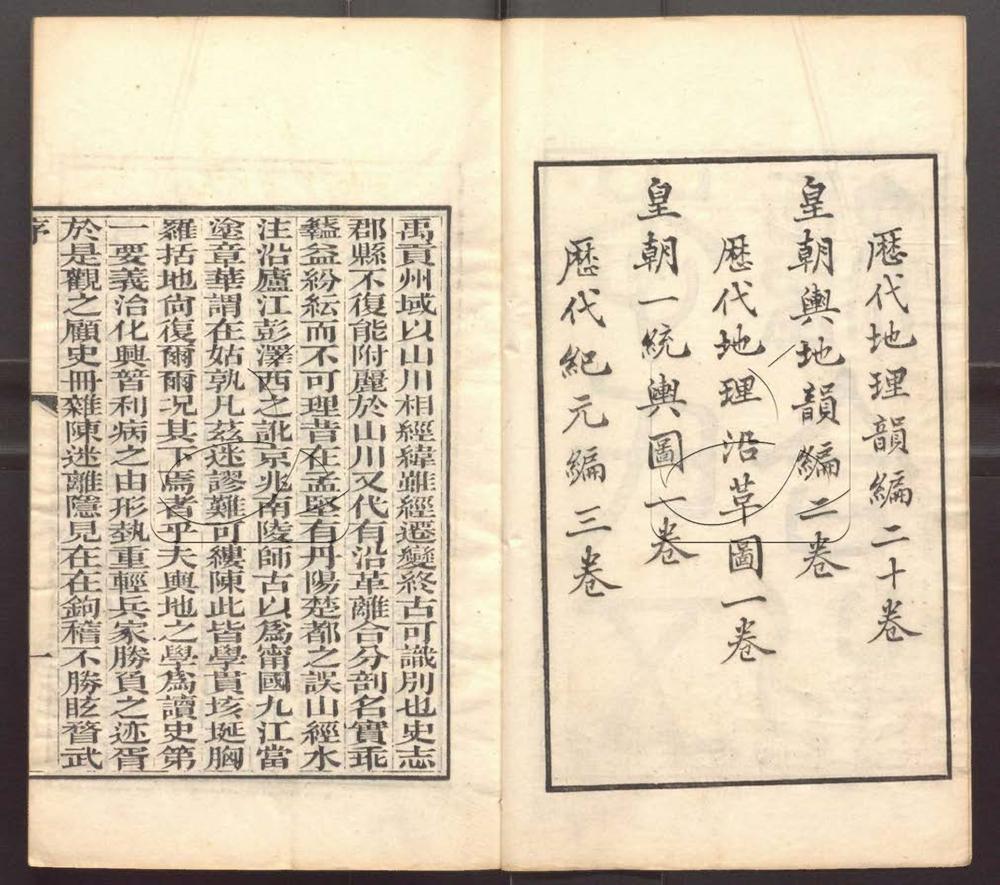 歷代地理韻編二十卷
皇朝輿地韻編二卷
歷代地理沿革圖一卷
皇朝一統輿圖一卷
歷代紀元編三卷
禹貢州域以山川相經緯雖經遷變終古可識別也史志
郡縣不復能附麗於山川又代有沿革離合分剖名實乖
蠡益紛紜而不可理昔在孟堅有丹陽楚都之誤山經水
注沿廬江彭澤西之訛京兆南陵師古以為甯國九江當
塗章華謂在姑孰凡茲迷謬難可縷陳此皆學貫垓埏胸
羅括地尙復爾爾況其下焉者乎夫輿地之學為讀史第
一要義治化興替利病之由形埶重輕兵家勝負之迹胥
於是觀之顧史冊雜陳迷離隱見在在鉤稽不勝眩瞀武
序
一